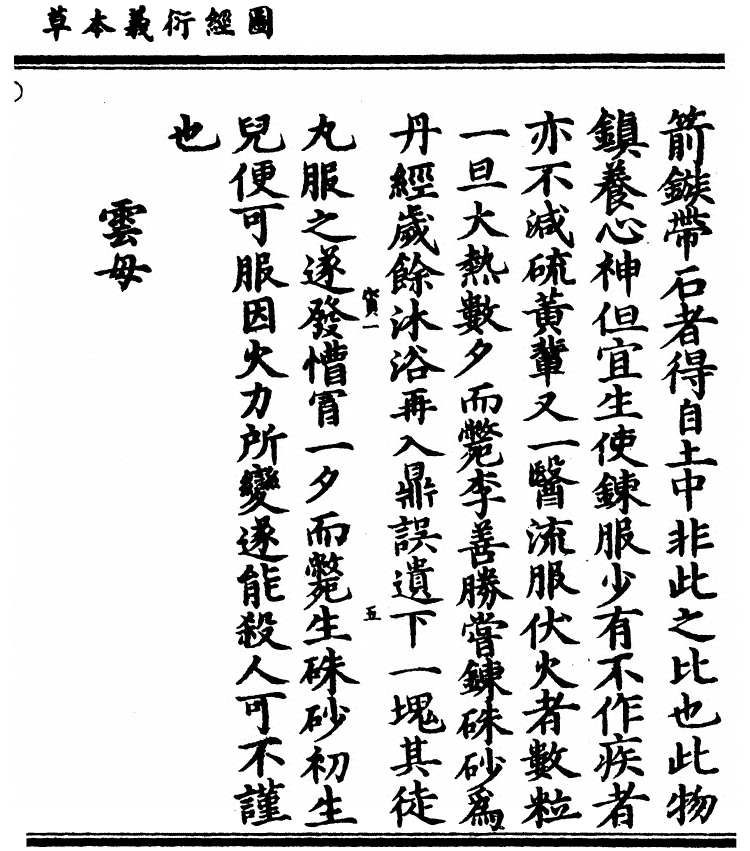 圖經衍義本草
箭鏃帶石者得自土中非此之比也此物
鎮養心神但宜生使鍊服少有不作疾者
亦不減硫黃輩又一醫流服伏火者數粒
一旦大熱數夕而斃李善勝嘗鍊硃砂為
丹經歲餘沐浴再入鼎誤遺下一塊其徒
寳一
五
丸服之遂發懵冐一夕而斃生硃砂初生
兒便可服因火力所變遂能殺人可不謹
也
雲母